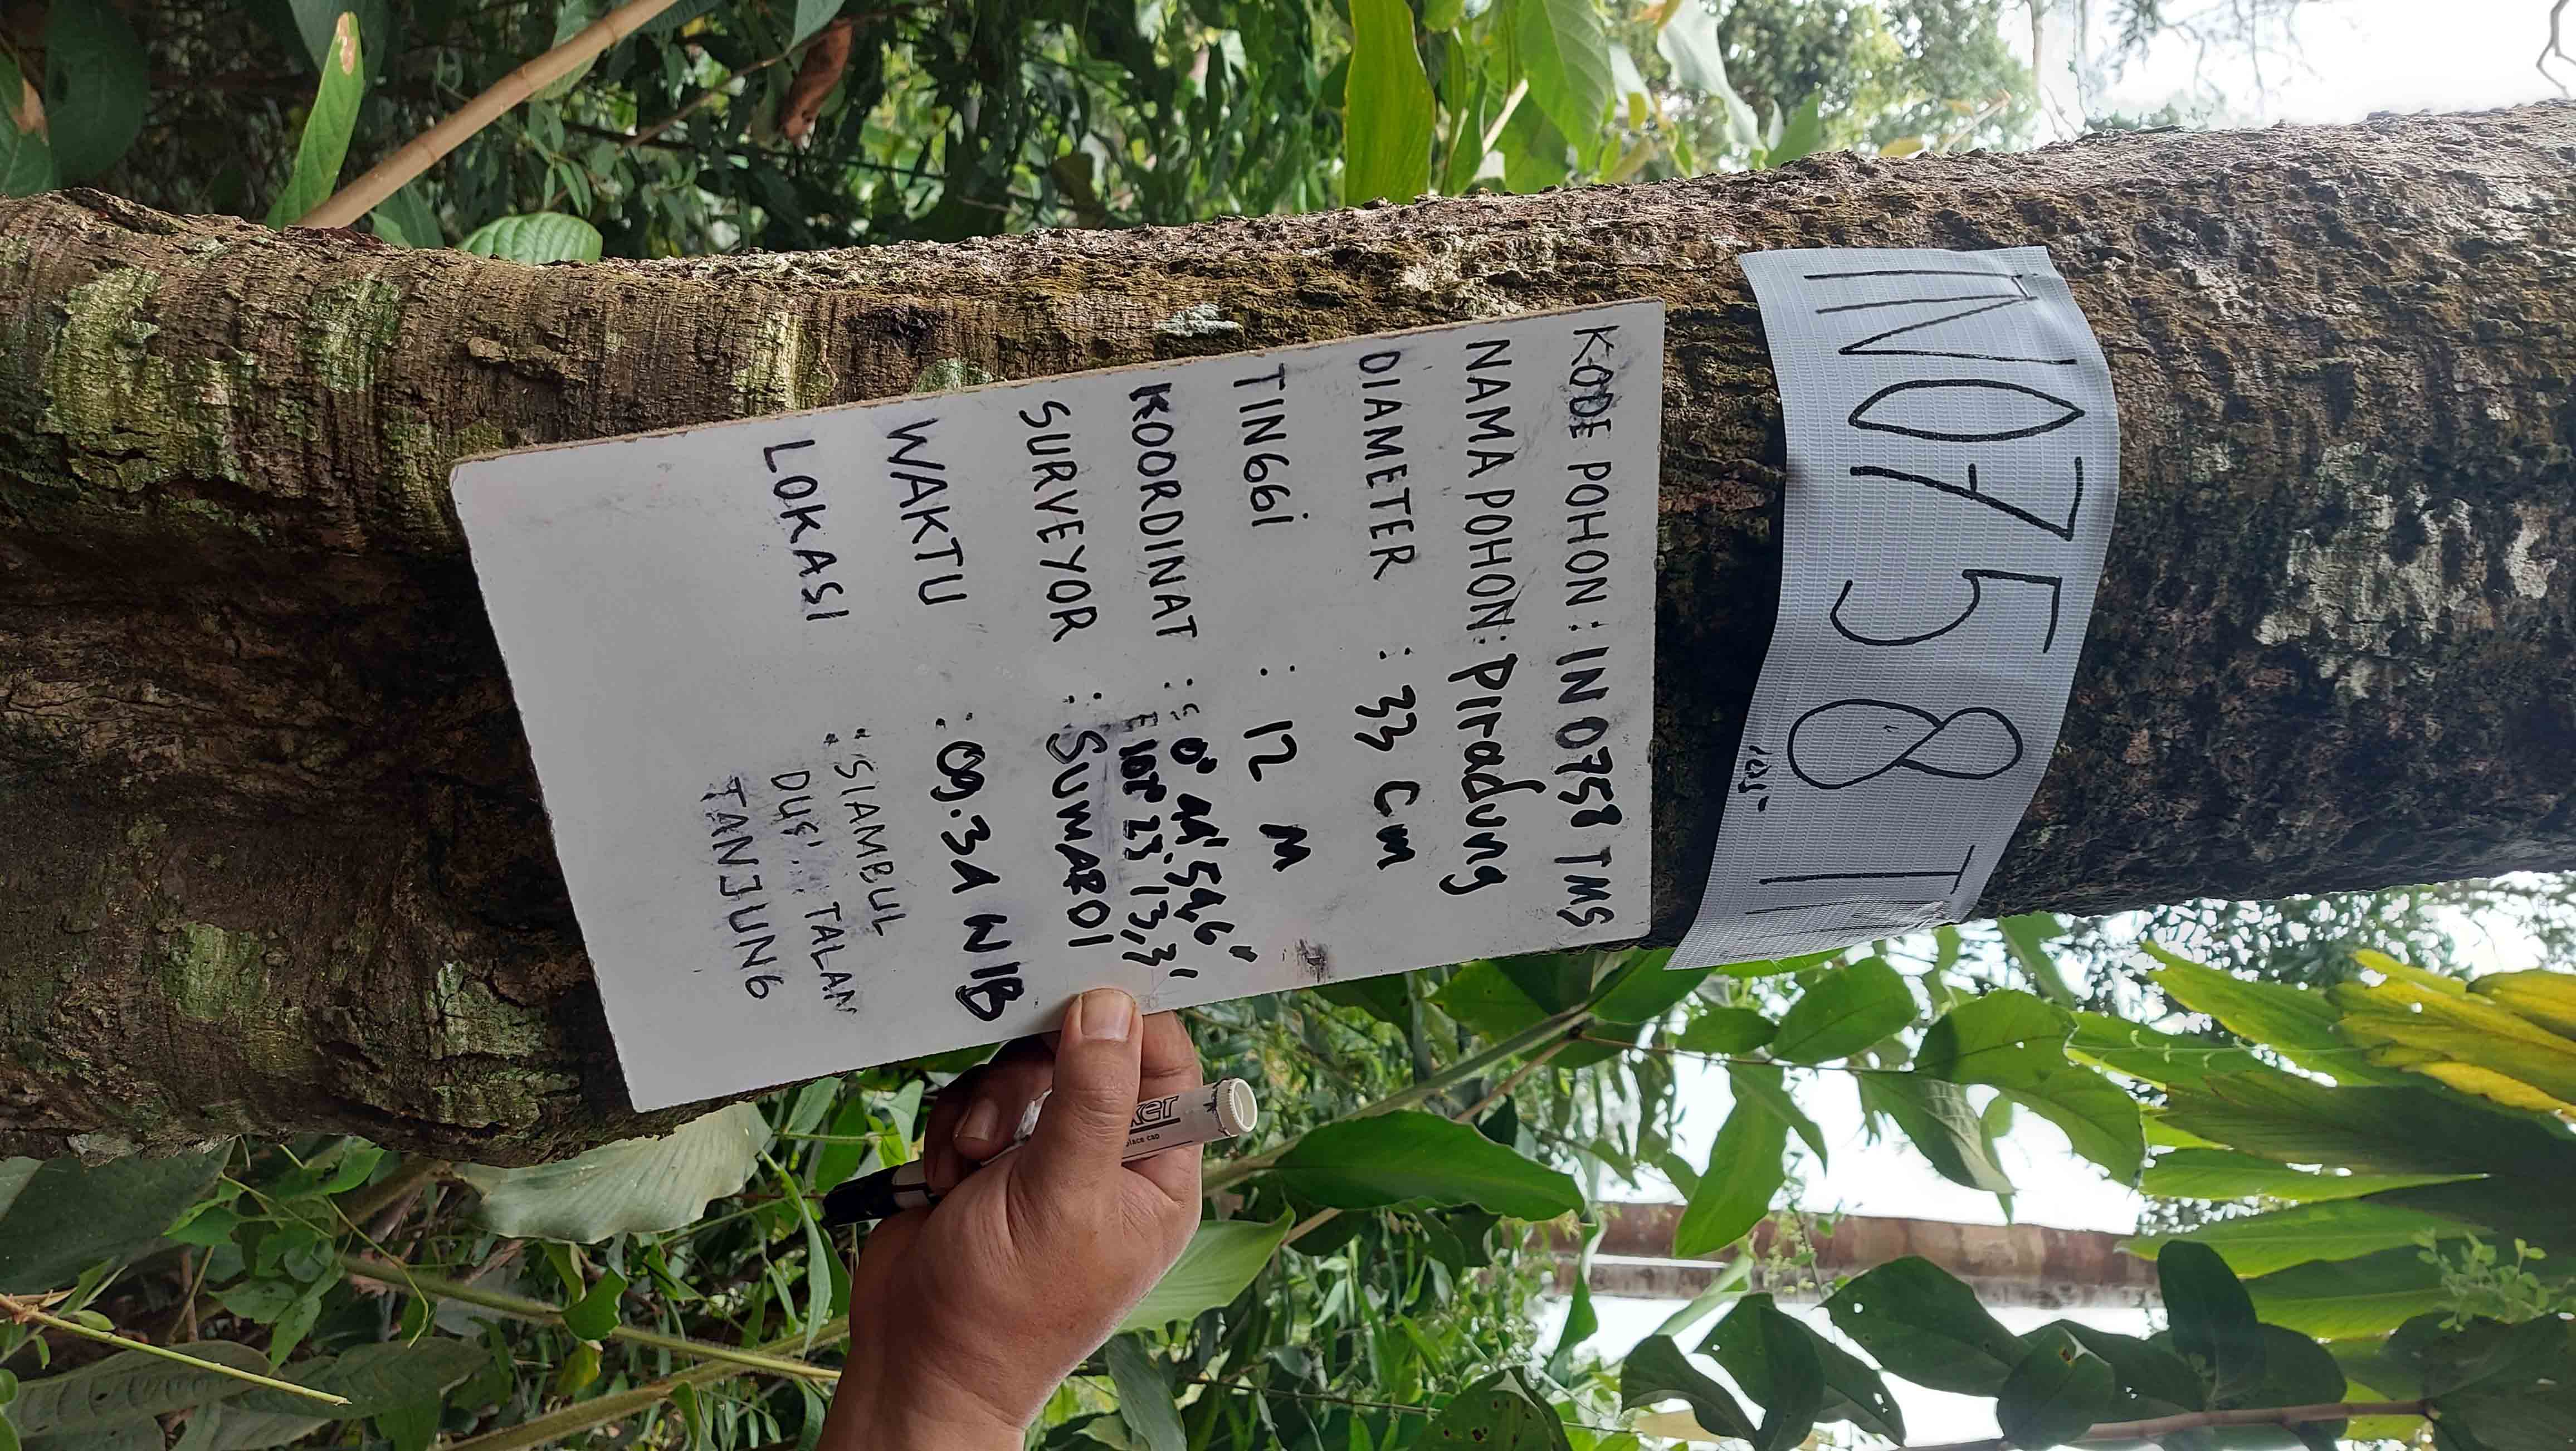 IN0758 TM
105
KODE POHON : IN 0758 TMS
NAMA POHON : Piradung
DIAMETER : 33 Cm
TINGGi : 12 M
KOORDINAT : S 0° 44' 54,6"
E 102° 23' 13,3'
SURVEYOR : SUMARDI
WAKTU : 09.34 WIB
LOKASI : SIAMBUL
TALAN
TANJUNG